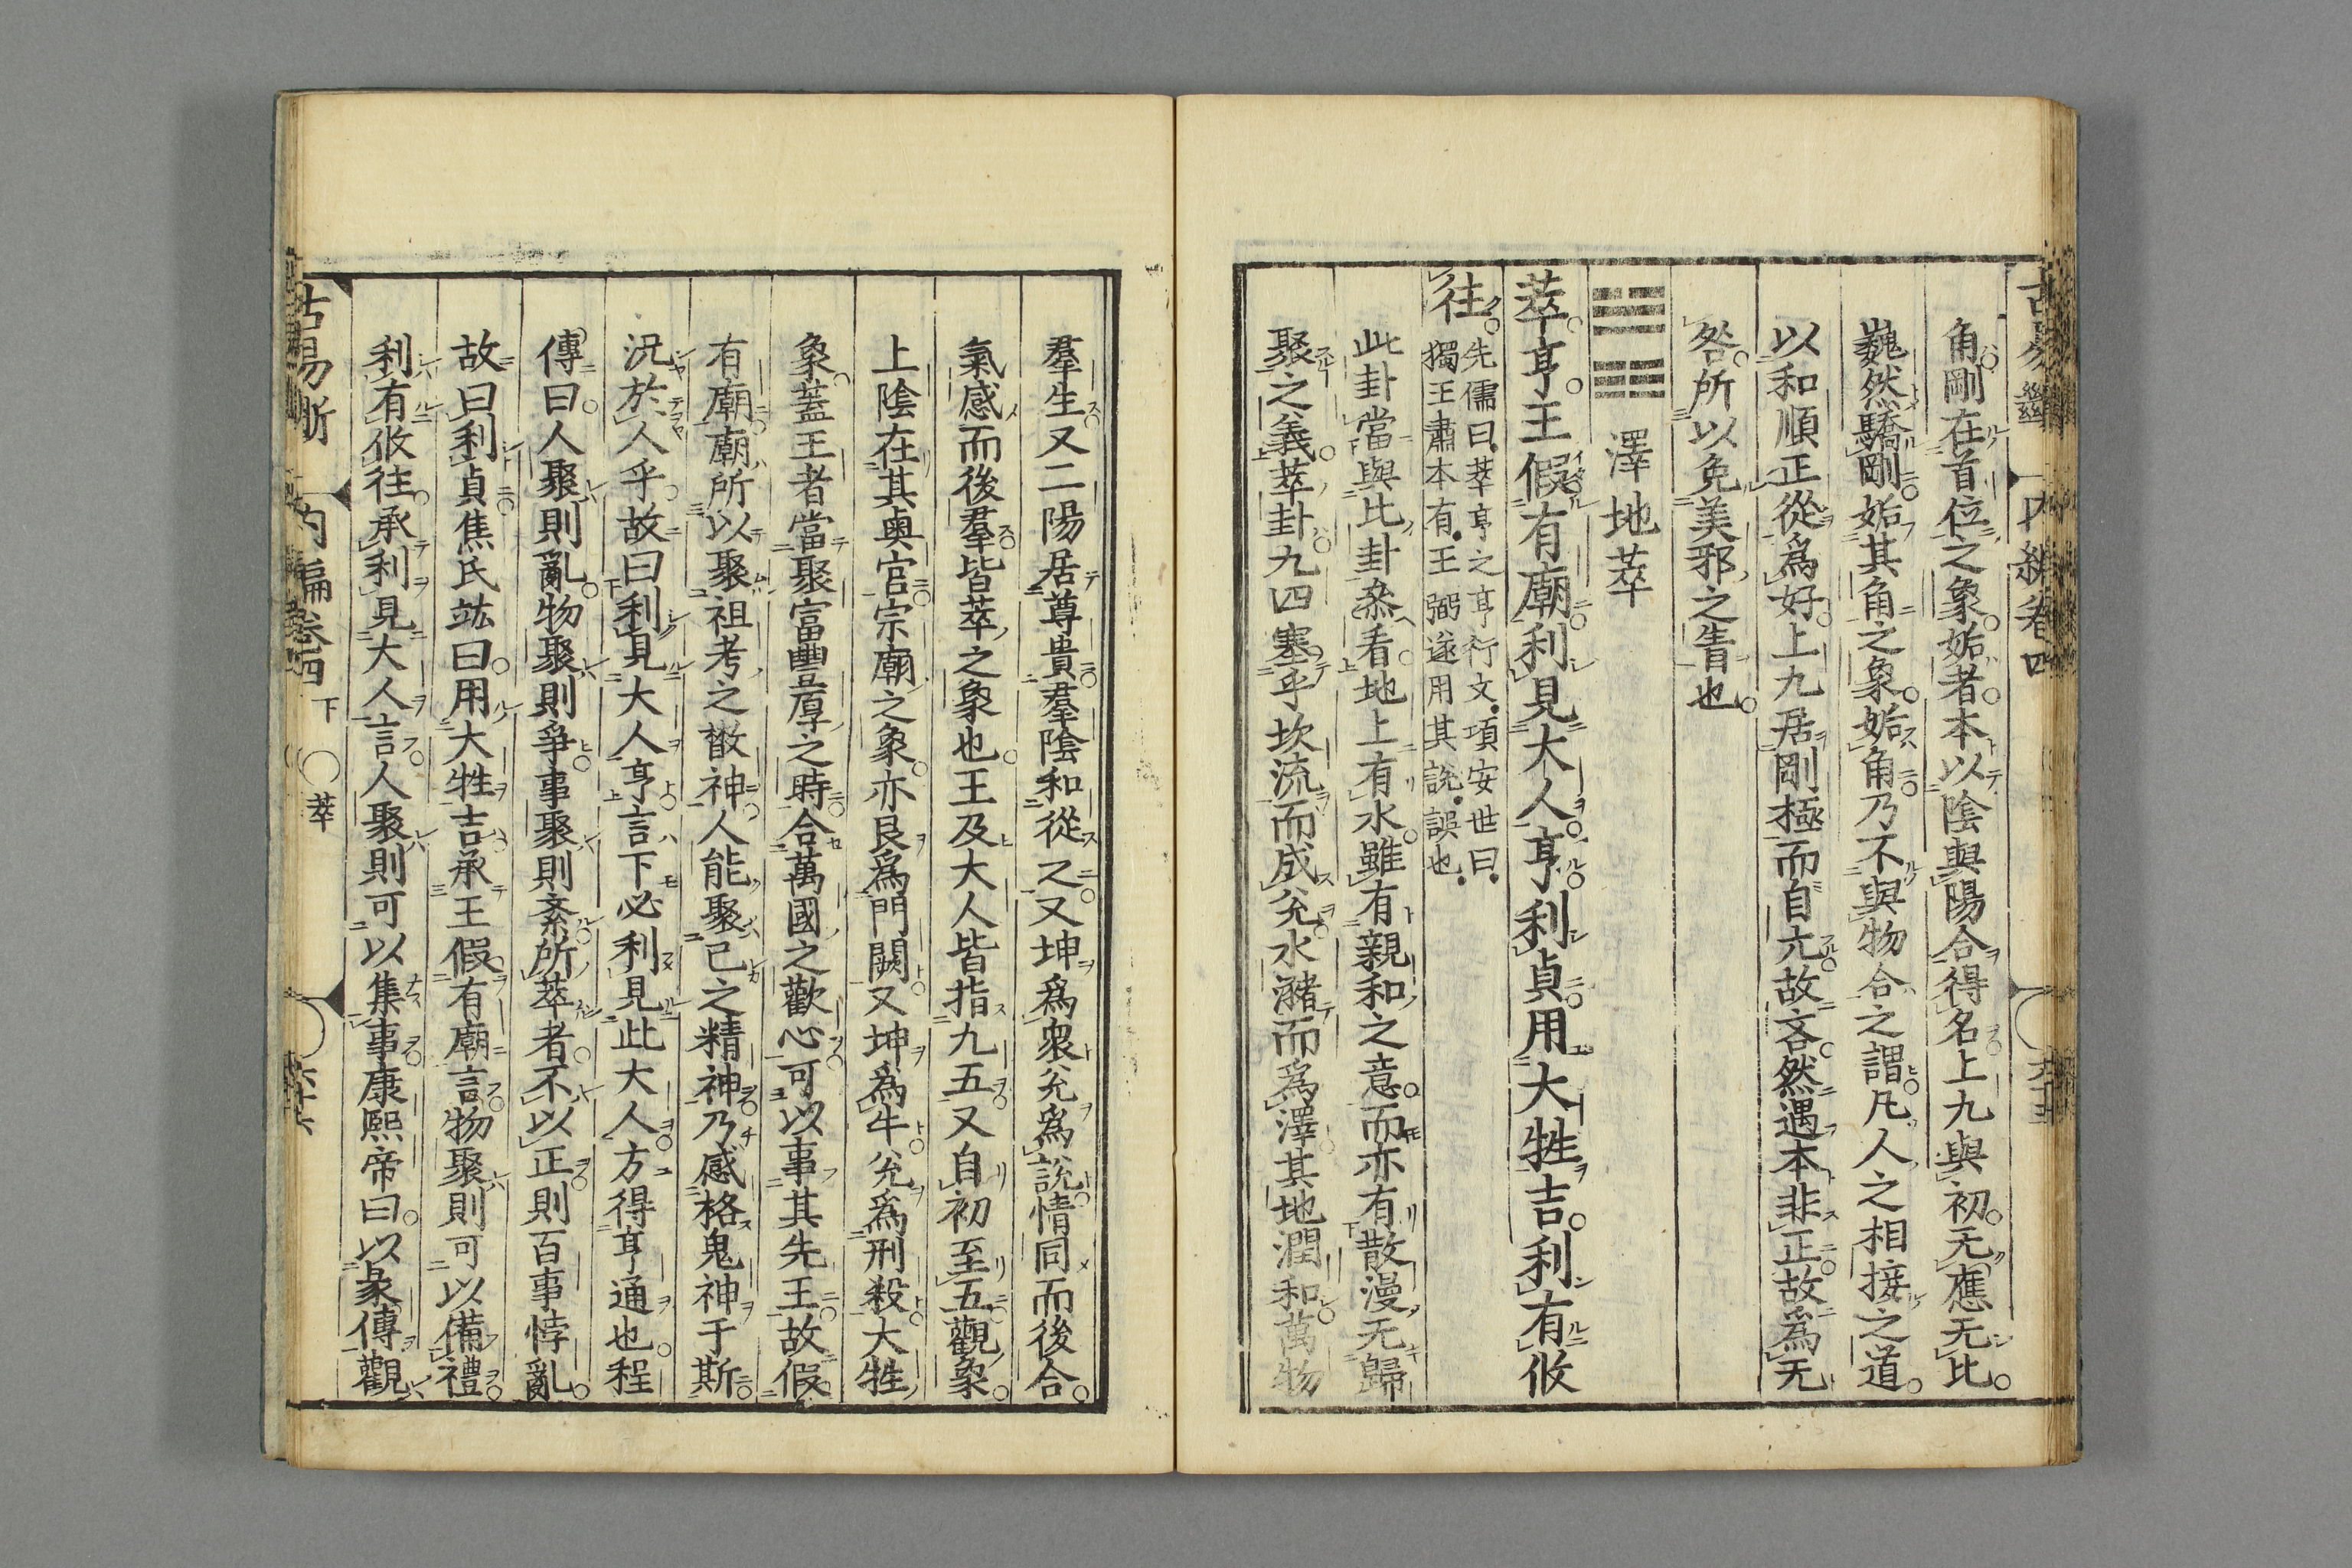 角剛在首位之象姤者本以陰與陽合得名上九與初无應无比
巍然驕剛姤其角之象姤角乃不與物合之謂凡人之相接之道
以和順正從爲好上九居剛極而自亢故吝然遇本非正故爲无
咎所以免美邪之眚也
澤地萃
萃亨王假有廟利見大人亨利貞用大牲吉利有攸
往先儒曰萃亨之亨衍文項安世曰
獨王肅本有王弼遂用其說誤也
此卦當與比卦叅看地上有水雖有親和之意而亦有散漫无歸
聚之義萃卦九四塞乎坎流而成兊水瀦而爲澤其地潤和萬物
羣生又二陽居尊貴羣陰和從之又坤爲衆兊爲說情同而後合
氣感而後羣皆萃之象也王及大人皆指九五又自初至五觀象
上陰在其奥宮宗廟之象亦艮爲門闕又坤爲牛兊爲刑殺大牲
象蓋王者當聚富豐厚之時合萬國之歡心可以事其先王故假
有廟廟所以聚祖考之散神人能聚己之精神乃感格鬼神于斯
況於人乎故曰利見大人亨言下必利見此大人方得亨通也程
傳曰人聚則亂物聚則爭事聚則紊所萃者不以正則百事悖亂
故曰利貞焦氏竑曰用大牲吉承王假有廟言物聚則可以備禮
利有攸往承利見大人言人聚則可以集事康熙帝曰以彖傳觀
古易斷
內編卷四 下 〇萃